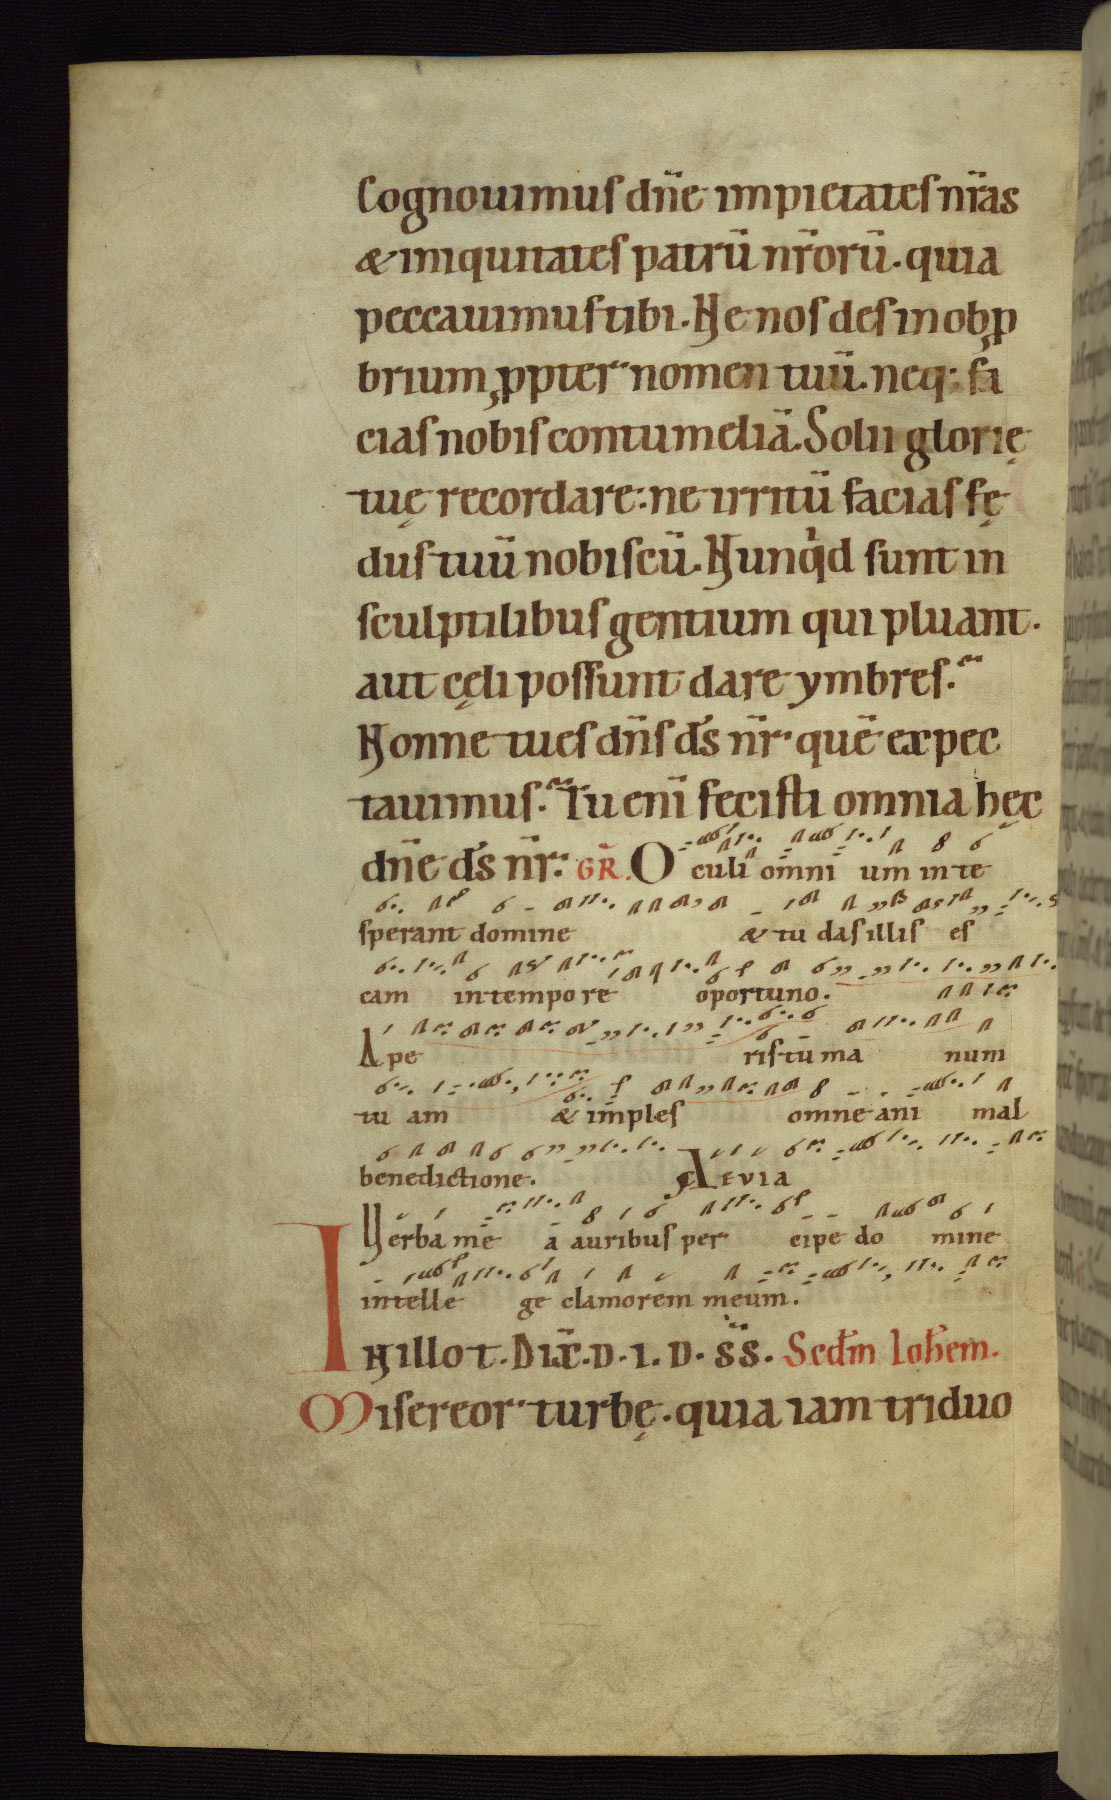 Cognouimus dn̄e impietates nr̄as
& iniquitates patrū nr̄orū. quia
peccauimus tibi. Ne nos des in obꝓ
brium ꝓpter nomen tuū. neq; fa
cias nobis contumeliā. Solii glorię
tuę recordare: ne irritū facias fę
dus tuū nobiscū. Nunqͥd sunt in
sculptilibus gentium qui pluant.
aut cęli possunt dare ymbres.
Nonne tu es dn̄s ds̄ nr̄ quē expec
tauimus. Tu eni̅ fecisti omnia hęc
dn̄e ds̄ nr̄. GR̄. Oculi omni um in te
sperant domine & tu das illis es
cam in tempore oportuno.
Ape ris tu ma num
tu am & imples omne ani mal
benedictione. Aeuia
Uerba me a auribus per cipe do mine
intelle ge clamorem meum.
In illo t. Dix̄. d. i. d. s̄s̄. Scd̄m Ioh̄em.
Misereor turbę. quia iam triduo